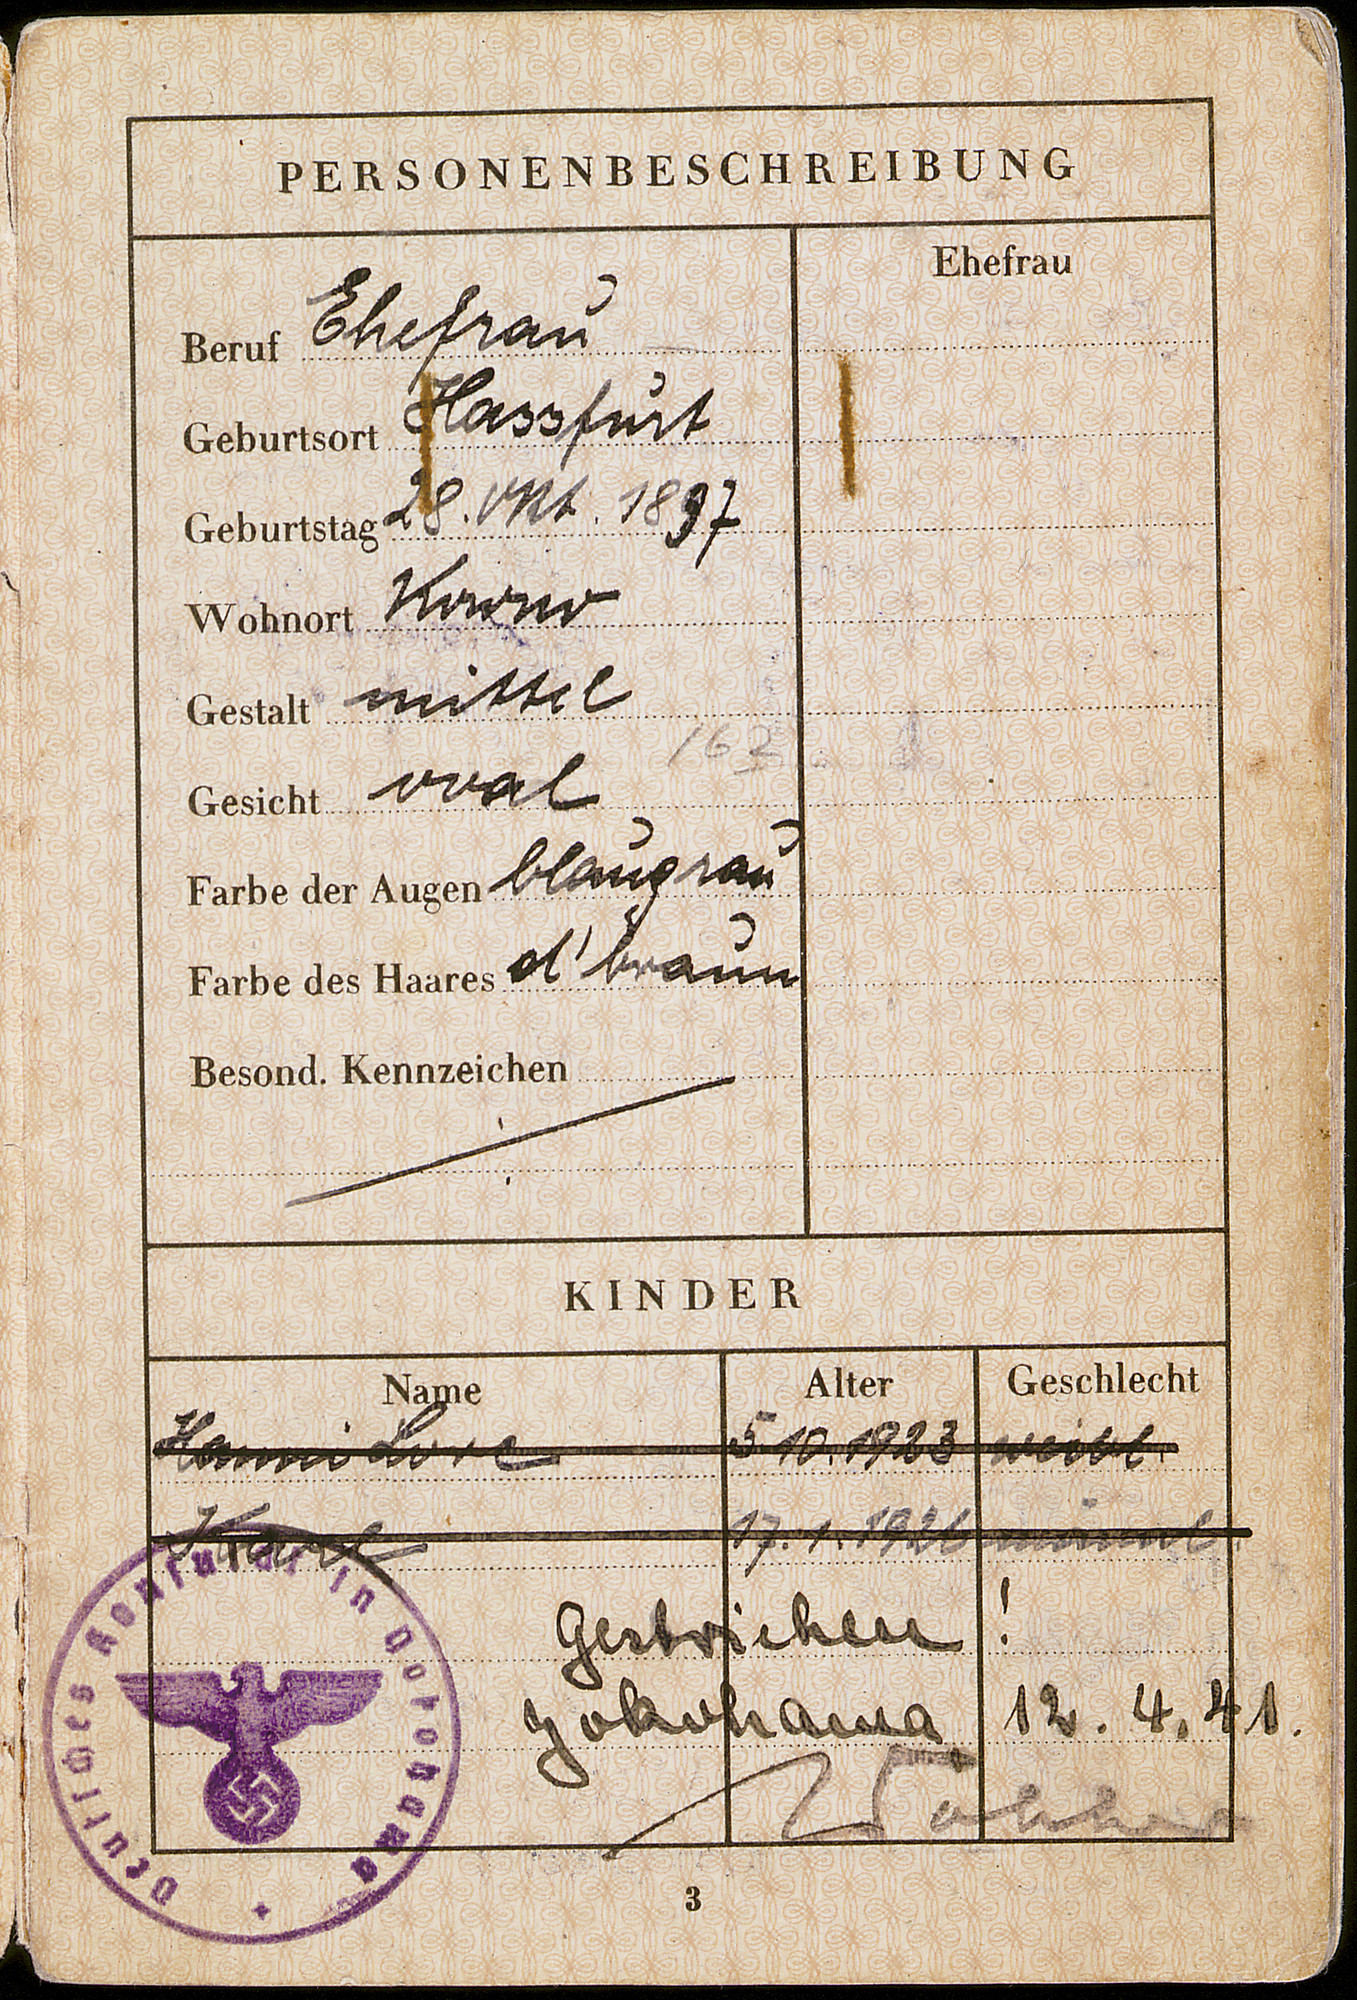 PERSONENBESCHREIBUNG
Ehefrau
Beruf Ehefrau
Geburtsort Hassfurt
Geburtstag 28. Okt. 1897
Wohnort Kowno
Gestalt mittel
163
Gesicht oval
Farbe der Augen blaugrau
Farbe des Haares d'braun
Besond. Kennzeichen
KINDER
Name Alter Geschlecht
Hanni Lore 5.10.1923 weibl.
Karl 17.1.1926 männl.
Gestrichen !
Yokohama 12. 4. 41.
Deutsches Konsulat in Yokohama
3